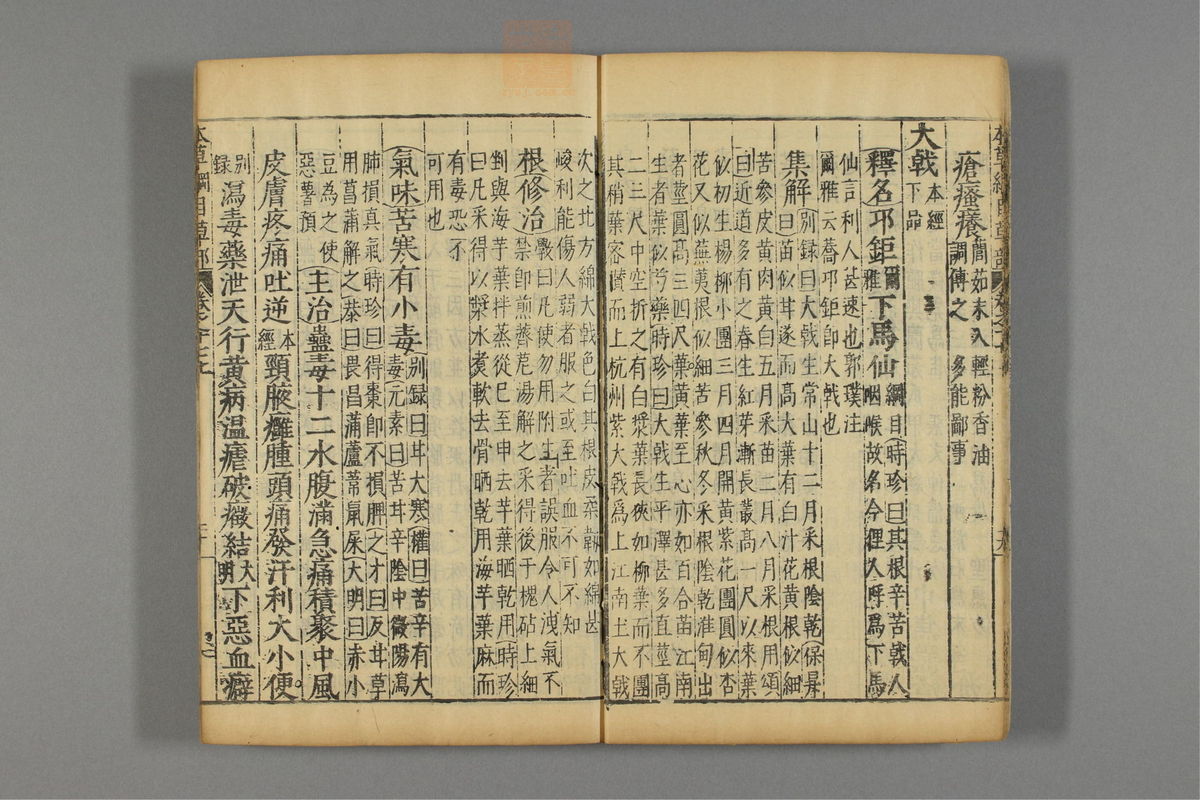 瘡瘙癢䕡茹末入輕粉香油
調傅之 多能鄙事
大戟本經下品
釋名邛鉅爾雅下馬仙綱目時珍曰其根辛苦戟人
咽喉故名今俚人呼爲下馬
仙言利人甚速也郭璞注
爾雅云蕎邛鉅即大戟也
集解別録曰大戟生常山十二月采根陰乾保昇
曰苗似甘遂而高大葉有白汁花黄根似細
苦參皮黄肉黄白五月采苗二月八月采根用頌
曰近道多有之春生紅芽漸長叢高一尺以來葉
似初生楊柳小團三月四月開黄紫花團圓似杏
花又似蕪荑根似細苦參秋冬采根陰乾淮甸出
者莖圓高三四尺葉黄葉至心亦如百合苗江南
生者葉似芍藥時珍曰大戟生平澤甚多直莖高
二三尺中空折之有白漿葉長狹如柳葉而不團
其稍葉密攢而上杭州紫大戟爲上江南土大戟
次之北方綿大戟色白其根皮柔韌如綿甚
峻利能傷人弱者服之或至吐血不可不知
根修治斅曰凡使勿用附生者誤服令人洩氣不
禁即煎薺苨湯解之采得後于槐砧上細
剉與海芋葉拌蒸從巳至申去芋葉晒乾用時珍
曰凡采得以漿水煮軟去骨晒乾用海芋葉麻而
有毒恐不
可用也
氣味苦寒有小毒別録曰甘大寒權曰苦辛有大
毒元素曰苦甘辛陰中微陽瀉
肺損真氣時珍曰得棗即不損脾之才曰反甘草
用菖蒲解之恭曰畏菖蒲蘆葦鼠屎大明曰赤小
豆爲之使
惡薯蕷
主治蠱毒十二水腹滿急痛積聚中風
皮膚疼痛吐逆本經頸腋癰腫頭痛發汗利大小便
別録瀉毒藥泄天行黄病温瘧破癥結大明下惡血癖